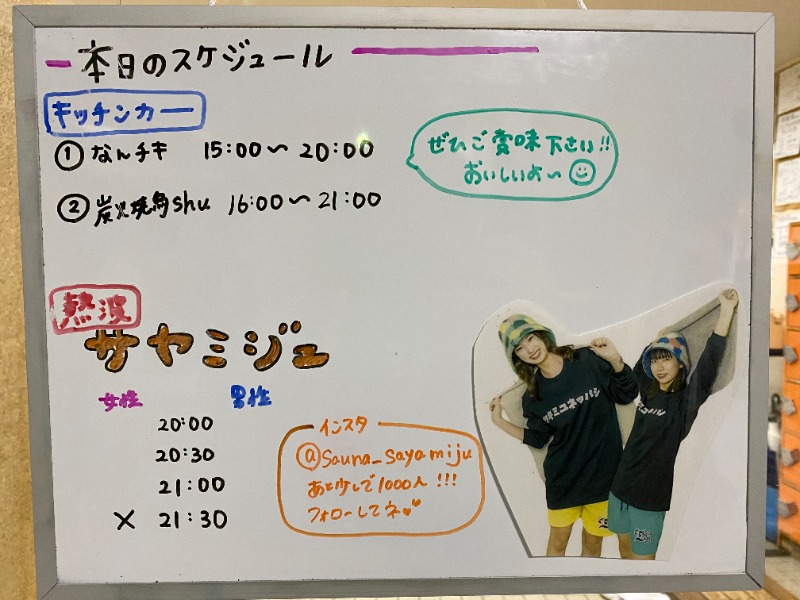 本日のスケジュール
キッチンカー
① なんチキ 15:00〜20:00
② 炭火焼鳥shu 16:00〜21:00
ぜひご賞味下さい!!
おいしいよ〜
熱波
サヤミジュ
女性 男性
20:00
20:30
21:00
× 21:30
インスタ
@sauna_sayamiju
あと少しで1000人!!!
フォローしてネ